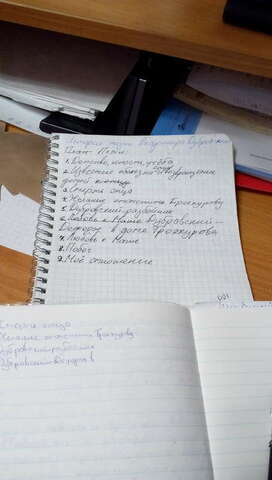 История жизни Владимира Дубровского
План
1. Детство, юность, учёба
2. Известие о болезни отца. Возвращение
домой
3. Смерть отца
4. Желание отомстить Троекурову
5. Дубровский разбойник
6. Любовь к Маше Дубровский -
Дефорж в доме Троекурова
7. Любовь к Маше
8. Побег
9. Моё отношение
Смерть отца
Желание отомстить Троекурову
Дубровский разбойник
Дубровский Дефорж в